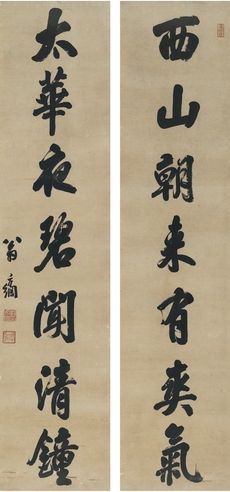 西山朝来有爽氣
太華夜碧聞清鐘
翁